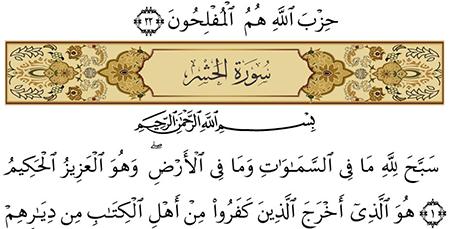 حِزْبَ ٱللَّهِ هُمُ ٱلْمُفْلِحُونَ ﴿٢٢﴾
سُورَةُ الحَشْرِ
بِسْمِ ٱللَّهِ ٱلرَّحْمَٰنِ ٱلرَّحِيمِ
سَبَّحَ لِلَّهِ مَا فِى ٱلسَّمَـٰوَٰتِ وَمَا فِى ٱلْأَرْضِ ۖ وَهُوَ ٱلْعَزِيزُ ٱلْحَكِيمُ
﴿١﴾ هُوَ ٱلَّذِىٓ أَخْرَجَ ٱلَّذِينَ كَفَرُوا۟ مِنْ أَهْلِ ٱلْكِتَـٰبِ مِن دِيَـٰرِهِمْ